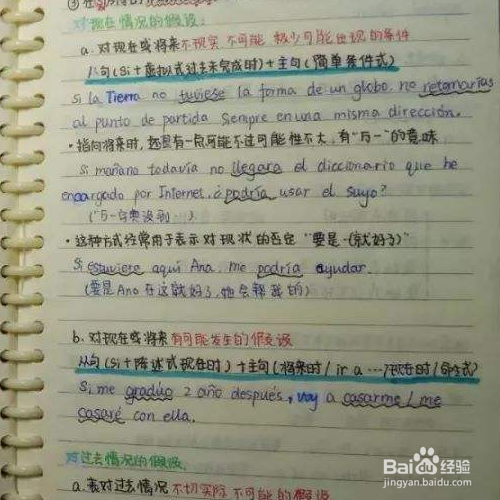 对现在情况的假设:
a. 对现在或将来不现实 不可能 极少可能出现的条件
从句(Si+虚拟式过去未完成时)+主句(简单条件式)
si la Tierra no tuviese la forma de un globo, no retornarías
al punto de partida siempre en una misma dirección.
·指向将来时,还是有一点可能不过可能性不大,有"万一"的意味
Si mañana todavía no llegara el diccionario que he
encargado por Internet, ¿podría usar el suyo?
(万一字典没到
·这种方式经常用于表示对现状的否定 "要是…就好了"
Si estuviere aquí Ana, me podría ayudar.
(要是Ana在这就好了,她会帮我的)
b. 对现在或将来有可能发生的假设
从句(Si+陈述式现在时)+主句(将来时/ir a …/现在时/命令式)
Si me gradúo 2 año después, voy a casarme / me
casaré con ella.
对过去情况的假设.
a. 表对过去情况 不切实际 不可能的假设
Baidu经验
jingyan.baidu.com